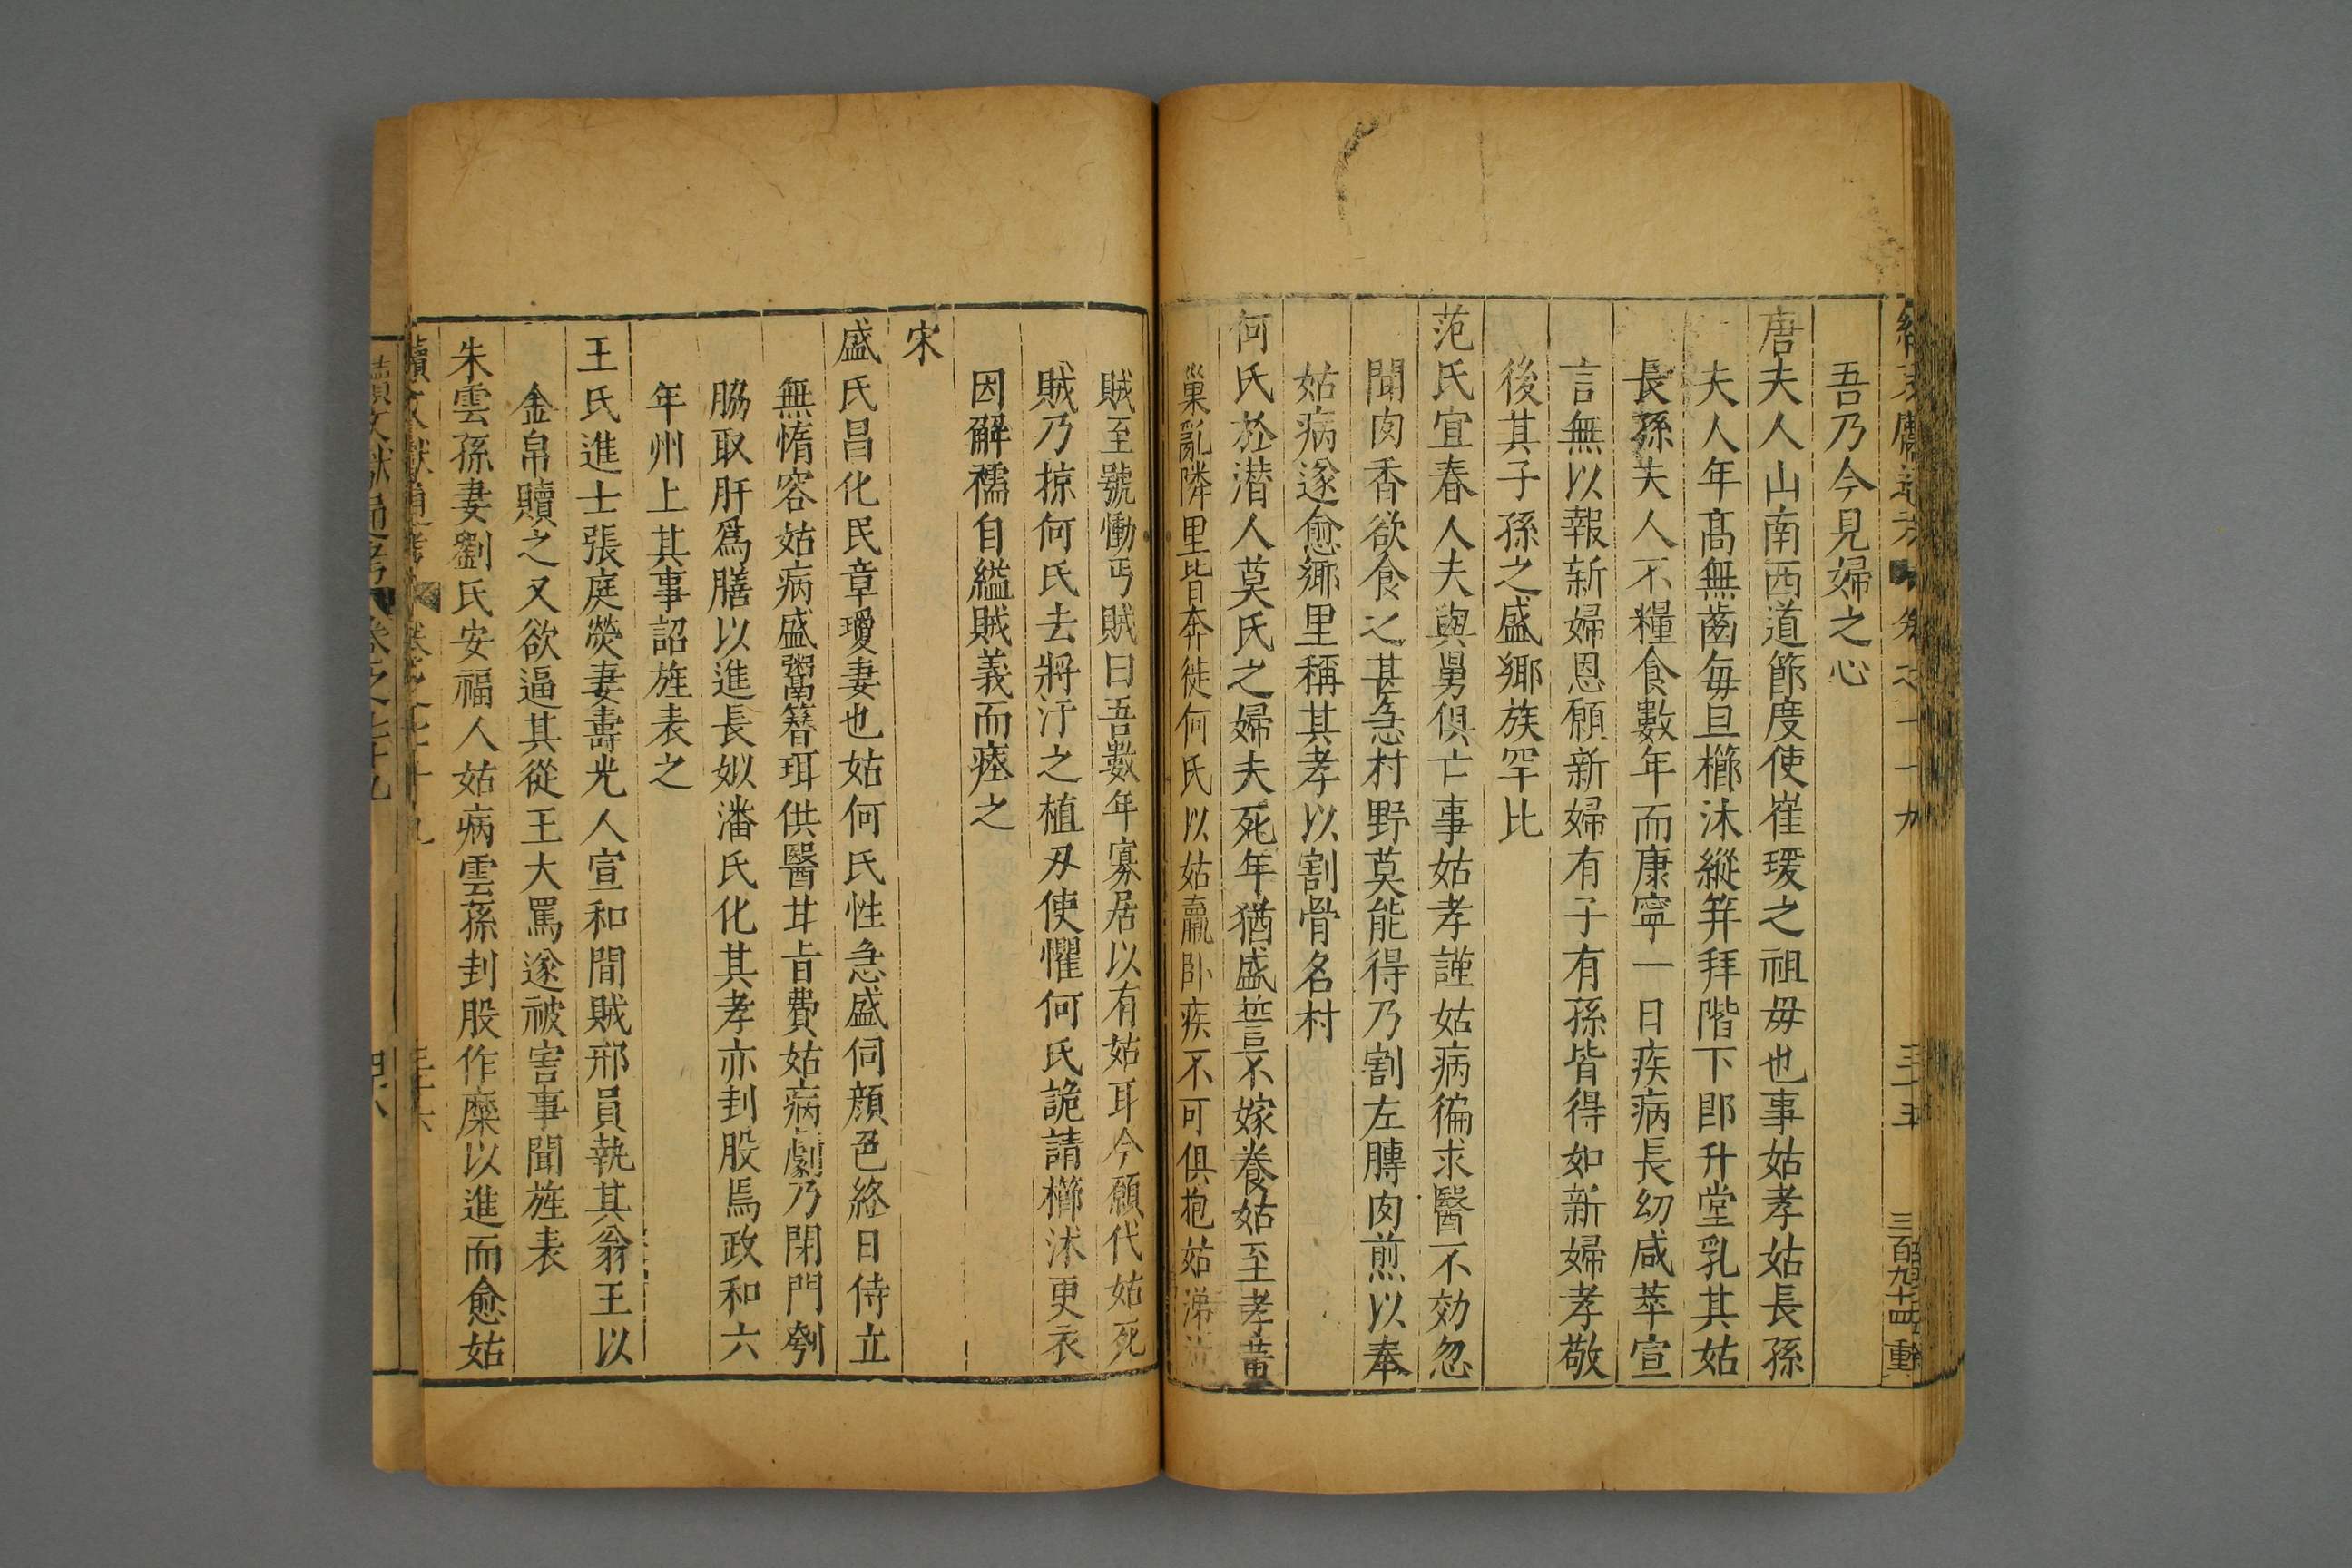 吾乃今見婦之心
唐夫人山南西道節度使崔瑗之祖毋也事姑孝姑長孫
夫人年髙無齒每旦櫛沐縱笄拜階下即升堂乳其姑
長孫夫人不糧食數年而康寧一日疾病長幼咸萃宣
言無以報新婦恩願新婦有子有孫皆得如新婦孝敬
後其子孫之盛鄉族罕比
范氏宜春人夫與舅俱亡事姑孝謹姑病徧求醫不効忽
聞肉香欲食之甚急村野莫能得乃割左膊肉煎以奉
姑病遂愈鄉里稱其孝以割骨名村
何氏於潜人莫氏之婦夫死年猶盛誓不嫁養姑至孝黃
巢亂隣里皆奔徙何氏以姑羸卧疾不可俱抱姑涕泣
賊至號慟丐賊曰吾數年寡居以有姑耳今願代姑死
賊乃掠何氏去將汙之植刃使懼何氏詭請櫛沐更衣
因解襦自縊賊義而瘞之
宋
盛氏昌化民章瓊妻也姑何氏性急盛伺顔色終日侍立
無惰容姑病盛鬻簪珥供醫甘旨費姑病劇乃閉門刳
脇取肝爲膳以進長姒潘氏化其孝亦刲股焉政和六
年州上其事詔旌表之
王氏進士張庭熒妻壽光人宣和間賊邢員執其翁王以
金帛贖之又欲逼其從王大罵遂被害事聞旌表
朱雲孫妻劉氏安福人姑病雲孫刲股作糜以進而愈姑
續文獻通考 卷之七十九